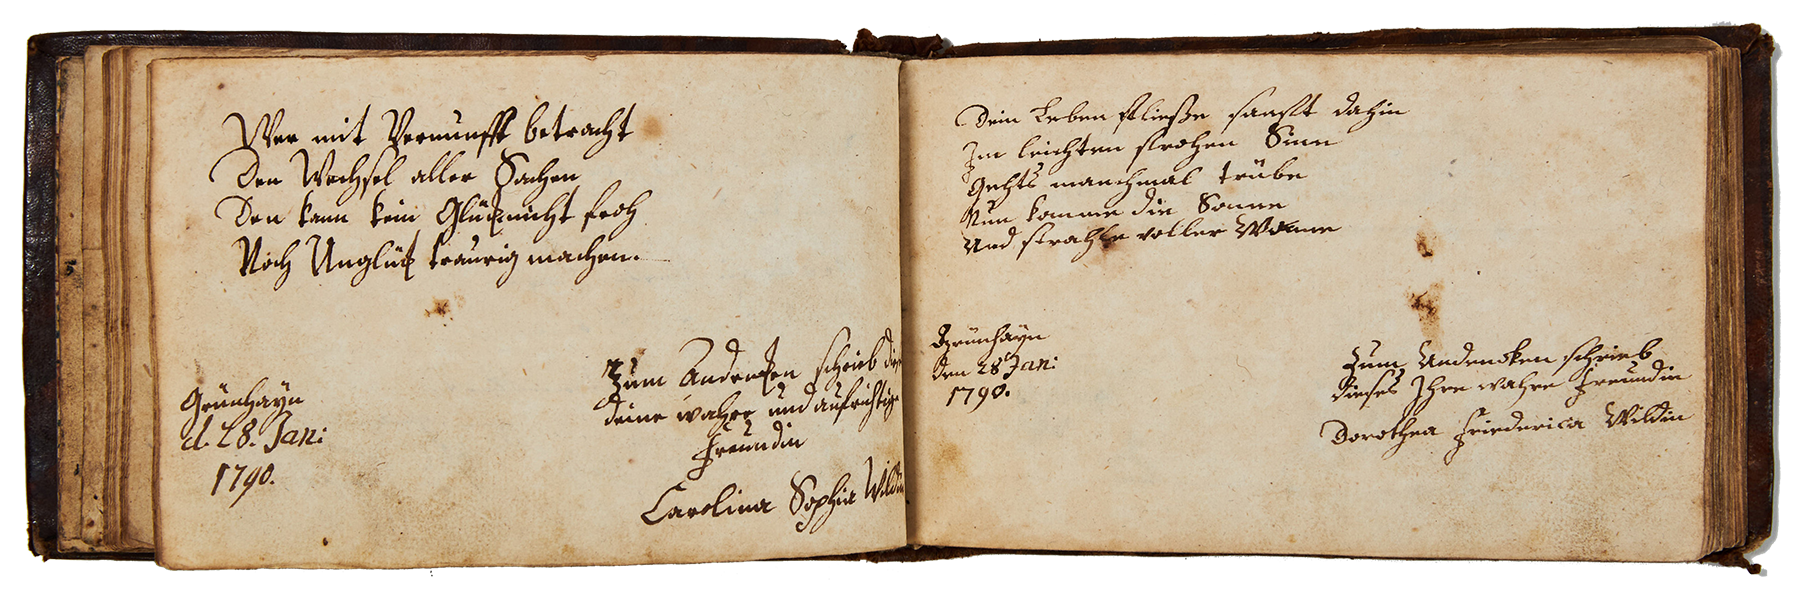 Wer mit Vernunfft betracht
Den Wechsel aller Sachen
Den kann kein Glück nicht froh
Noch Unglück traurig machen.
Grünhayn
d. 28. Jan:
1790.
Zum Andencken schrieb
deine wahre und aufrichtige
Freundin
Carolina Sophia Wildin
Dein Leben fließe sanft dahin
Im leichten frohen Sinn
Gehts manchmal trübe
Nun komme die Sonne
Und strahle voller Wonne
Grünhayn
den 28 Jan:
1790.
Zum Andencken schrieb
dieses Ihre wahre Freundin
Dorothea Friederica Wildin